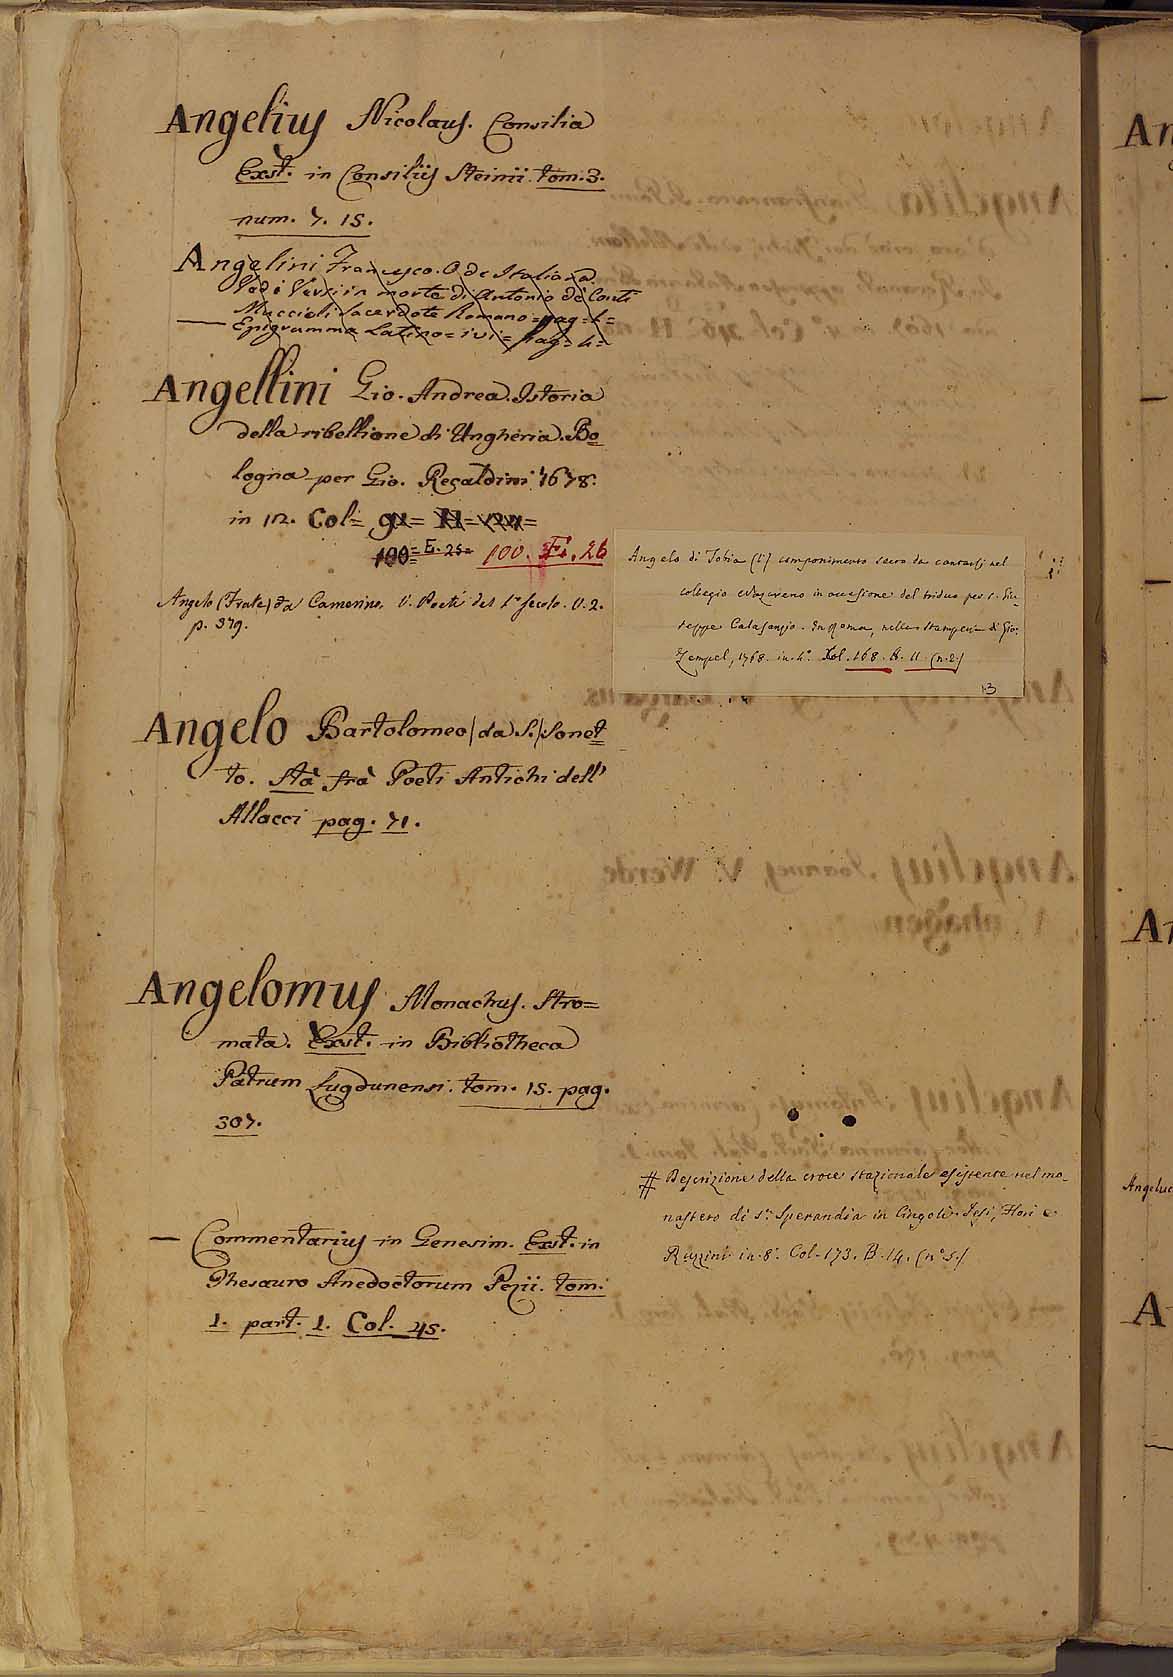 Angelius Nicolaus. Consilia
Exst. in Consiliis Steinii. tom. 3.
num. 7. 15.
Angelini Francesco. Ode Italiana.
Vedi Versi in morte di Antonio de Conti
Muccioli Sacerdote Romano = pag = =
— Epigramma Latino = ivi = pag = 4 =
Angellini Gio. Andrea. Istoria
della ribellione di Ungheria. Bo=
logna per Gio. Recaldini 1678.
in 12. Col=
100 = E. 25 = 100. 26
Angelo (Frate) da Camerino. V. Poeti del 1º secolo. V. 2.
p. 379.
Angelo di Tobia (L') componimento sacro da cantarsi nel
collegio Nazareno in occasione del triduo per S. Giu-
seppe Calasanzio. In Roma, nella stamperia di Gio:
Zempel, 1768. in 4º. Col. 168. A. 11. (n. 2.)
13
Angelo Bartolomeo /da S./ Sonet=
to. Stà frà Poeti Antichi dell'
Allacci pag. 71.
Angelomus Monachus. Stro=
mata. Exst. in Bibliotheca
Patrum Lugdunensi. tom. 15. pag.
307.
# Descrizione della croce stazionale esistente nel mo-
nastero di Sª. Sperandia in Cingoli. Jesi, Flori e
Ruzzini in 8º. Col. 173. B. 14. (nº 5.)
— Commentarius in Genesim. Exst. in
Thesauro Anedoctorum Pezii. tom.
1. part. 1. Col. 45.